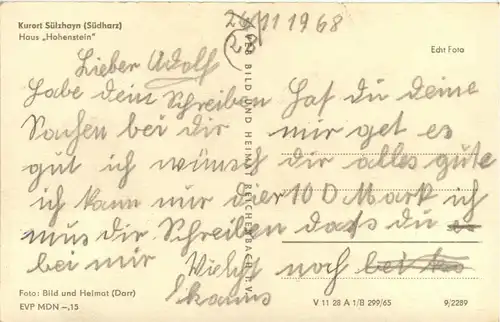 Kurort Sülzhayn (Südharz)
Haus „Hohenstein“
26 11 1968
22
Echt Foto
Lieber Adolf
habe dein Schreiben Hast du deine
Sachen bei dir mir get es
gut ich wünsch dir alles gute
ich kann nur dier 10 D Mark ich
mus dir Schreiben das du
bei mir noch
kanns
VEB BILD UND HEIMAT REICHENBACH I. V.
Foto: Bild und Heimat (Darr)
EVP MDN –,15
V 11 28 A 1/B 299/65
9/2289